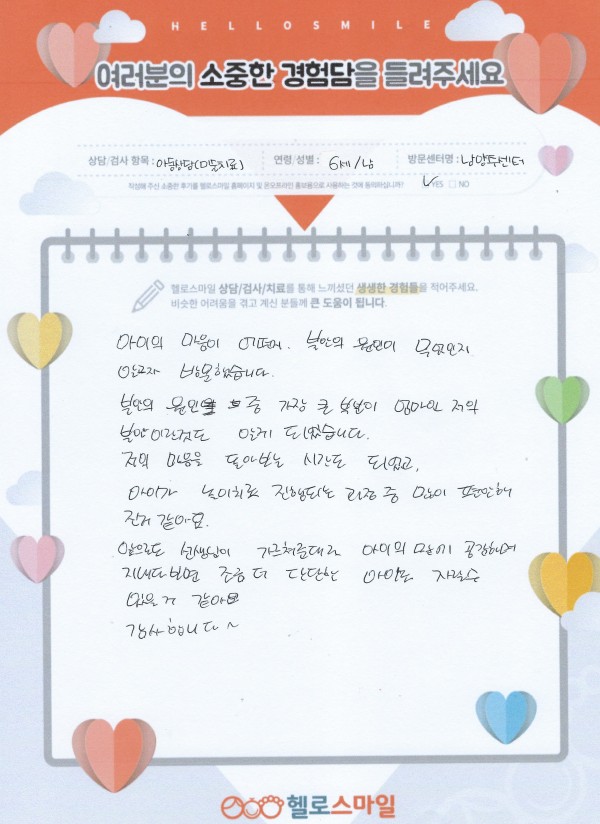 HELLOSMILE
여러분의 소중한 경험담을 들려주세요
상담/검사 항목 : 아동상담(미술치료) 연령/성별 : 6세/남 방문센터명 : 남양주센터
작성해 주신 소중한 후기를 헬로스마일 홈페이지 및 온오프라인 홍보용으로 사용하는 것에 동의하십니까? ✓YES □ NO
헬로스마일 상담/검사/치료를 통해 느끼셨던 생생한 경험들을 적어주세요.
비슷한 어려움을 겪고 계신 분들께 큰 도움이 됩니다.
아이의 마음이 어떤지, 불안의 원인이 무엇인지
알고자 방문했습니다.
불안의 원인 중 가장 큰 부분이 엄마인 저의
불안이란것도 알게 되었습니다.
저의 마음을 돌아보는 시간도 되었고,
아이가 놀이치료 진행되는 과정 중 많이 편안해
진거 같아요.
앞으로도 선생님이 가르쳐준대로 아이의 맘에 공감하며
지내다보면 조금 더 단단한 아이로 자랄수
있을거 같아요
감사합니다~
헬로스마일